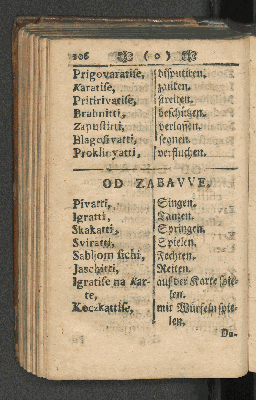 106 ( 0 )
Prigovaratiſe, diſputiren.
Karatiſe, zanken.
Pritirivatiſe, ſtreiten.
Brabnitti, beſchützen.
Zapuſtitti, verlaſſen.
Blagoſivatti, ſegnen.
Proklinyatti, verfluchen.
OD ZABAVVE.
Pivatti, Singen.
Igratti, Tanzen.
Skakatti, Springen.
Sviratti, Spielen.
Sabljom ſichi, Fechten.
Jaſchitti, Reiten.
Igratiſe na Kar- auf der Karte ſpie-
te, len.
Kockattiſe, mit Würfeln ſpie-
len.
Du-